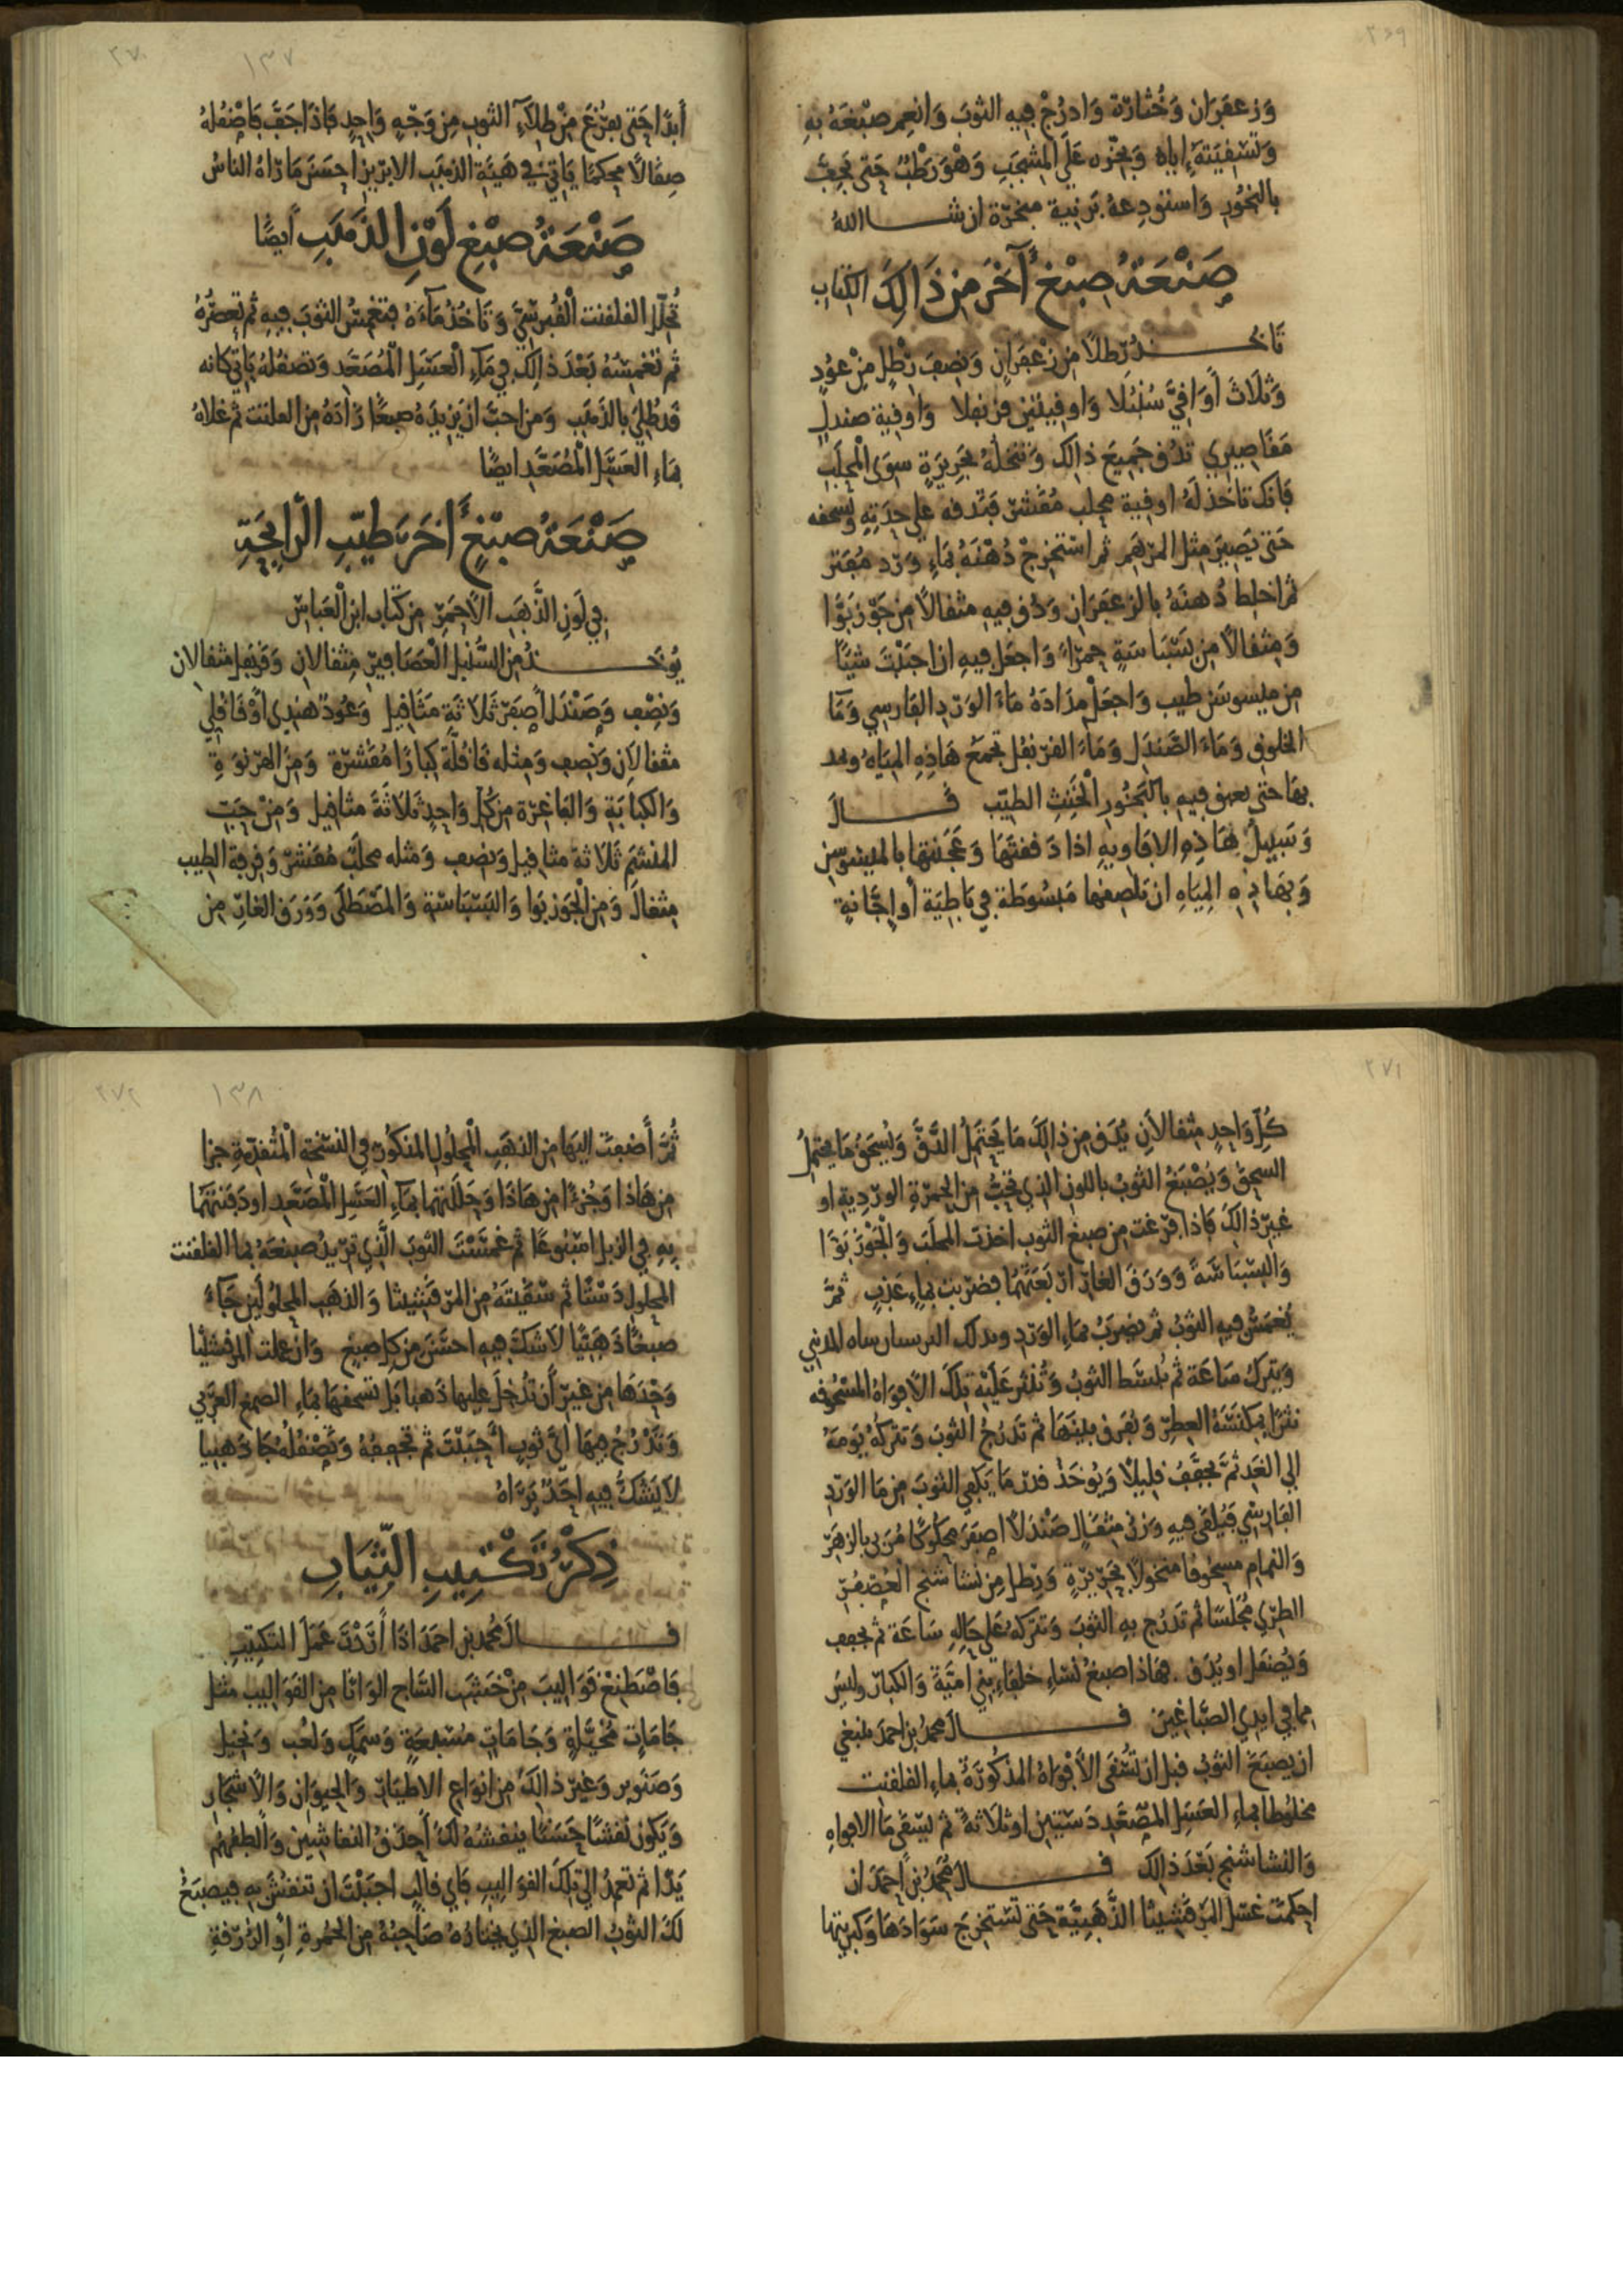 ٢٦٩
وزعفران وخثارة وادرج فيه الثوب وانعم صبغه به
وتسقيته اياه وبخره على المشجب وهو رطب حتى يجف
بالبخور واستودعه برنية مبخرة ان شا الله
صنعة صبغ آخر من ذالك الكتاب
تاخذ رطلا من زعفران ونصف رطل من عود
وثلاث أواقي سنبلا واوقيتين قرنفلا واوقية صندل
مقاصيري تدق جميع ذالك وتنخله بحريرة سوى المحلب
فانك تاخذ له اوقية محلب مقشر فتدقه على حدته وتسحقه
حتى يصير مثل المرهم ثم استخرج دهنه بماء ورد مفتر
ثم اخلط دهنه بالزعفران ودق فيه مثقالا من جوزبوا
ومثقالا من بسباسة حمراء واجعل فيه ان احببت شيئا
من ميسوسن طيب واجعل مداده ماء الورد الفارسي وما
الخلوق وماء الصندل وماء القرنفل تجمع هاذه المياه
بها حتى يعبق فيه بالبخور الطيب قال
وسبيل هاذه الافاويه اذا دققتها وعجنتها بالميسوسن
وبهاذه المياه ان تلصقها مبسوطة في باطية أو اجانة
٢٧٠ ١٣٧
أبدا حتى يفرغ من طلاء الثوب من وجه واحد فاذا جف فاصقله
صقالا محكما ياتي في هيئة الذهب الابريز احسن ما رآه الناس
صنعة صبغ لون الذهب أيضا
تحلل القلقنت القبرسي وتاخذ ماءه فتغمس الثوب فيه ثم تعصره
ثم تغمسه بعد ذالك في ماء العسل المصعد وتصقله ياتي كانه
قد طلي بالذهب ومن احب ان يزيده صبغا زاده من القلقنت ثم علاه
بماء العسل المصعد ايضا
صنعة صبغ أخر طيب الرايحة
في لون الذهب الاحمر من كتاب ابن العباس
يوخذ من السنبل العصافير مثقالان وقرنفل مثقالان
ونصف وصندل اصفر ثلاثة مثاقيل وعود هندي او قاقلي
مثقالان ونصف ومثله قاقلة كبارا مقشرة ومن الهرنوة
والكبابة والفاغرة من كل واحد ثلاثة مثاقيل ومن حب
المنشم ثلاثة مثاقيل ونصف ومثله محلب مقشر وقرفة الطيب
مثقال ومن الجوزبوا والبسباسة والمصطكى وورق الغار من
٢٧١
كل واحد مثقالان يدق من ذالك ما يحتمل الدق ويسحق ما يحتمل
السحق ويصبغ الثوب باللون الذي تحب من الحمرة الوردية او
غير ذالك فاذا فرغت من صبغ الثوب اخذت المحلب والجوزبوا
والبسباسة وورق الغار فضربت بماء عذب ثم
يغمس فيه الثوب ثم يضرب بماء الورد
ويترك ساعة ثم يبسط الثوب وتنثر عليه تلك الافواه المسحوقة
نثرا بمكنسة العطر ويفرق بينها ثم تدرج الثوب وتتركه يومه
الى الغد ثم يجفف قليلا ويوخذ قدر ما يكفي الثوب من ما الورد
الفارسي فيلقى فيه وزن مثقال صندلا اصفر محكوكا مربى بالزهر
والنمام مسحوقا منخولا بحريرة ورطل من نشاشتج العصفر
الطري ثم تدرج به الثوب وتتركه على حاله ساعة ثم يجفف
ويصقل او يدق هاذا صبغ نساء خلفاء بني امية والكبار وليس
مما في ايدي الصباغين قال محمد بن احمد ينبغي
ان يصبغ الثوب قبل ان تسقى الافواه المذكورة بماء القلقنت
مخلوطا بماء العسل المصعد دستين او ثلاثة ثم يسقى ما الافواه
والنشاشتج بعد ذالك قال محمد بن أحمد ان
احكمت غسل المرقشيثا الذهبية حتى تستخرج سوادها وكبريتها
٢٧٢ ١٣٨
ثم أضفت اليها من الذهب المحلول المذكور في النسخة المتقدمة جزا
من هاذا وجزءا من هاذا وحللتهما بماء العسل المصعد اودفنتهما
به في الزبل اسبوعا ثم غمست الثوب الذي تريد صبغه بما القلقنت
المحلول دستا ثم سقيته من المرقشيثا والذهب المحلولين جاء
صبغا ذهبيا لا شك فيه احسن من كل صبغ وان عملت المرقشيثا
وحدها من غير أن تدخل عليها ذهبا بل تسحقها بماء الصمغ العربي
وتدرج بها اي ثوب احببت ثم تجففه وتصقله جا ذهبيا
لا يشك فيه احد يراه
ذكر تكتيب الثياب
قال محمد بن احمد اذا أردت عمل التكتيب
فاصطنع قواليب من خشب الساج الوانا من القواليب مثل
جامات مخيلة وجامات مسبعة وسمك ولعب ونخيل
وصنوبر وغير ذالك من انواع الاطيار والحيوان والاشجار
ويكون نقشا حسنا ينقشه لك أحذق النقاشين والطفهم
يدا ثم تعمد الى تلك القواليب فاي قالب احببت ان تنقش به فيصبغ
لك الثوب الصبغ الذي يختاره صاحبه من الحمرة او الزرقة